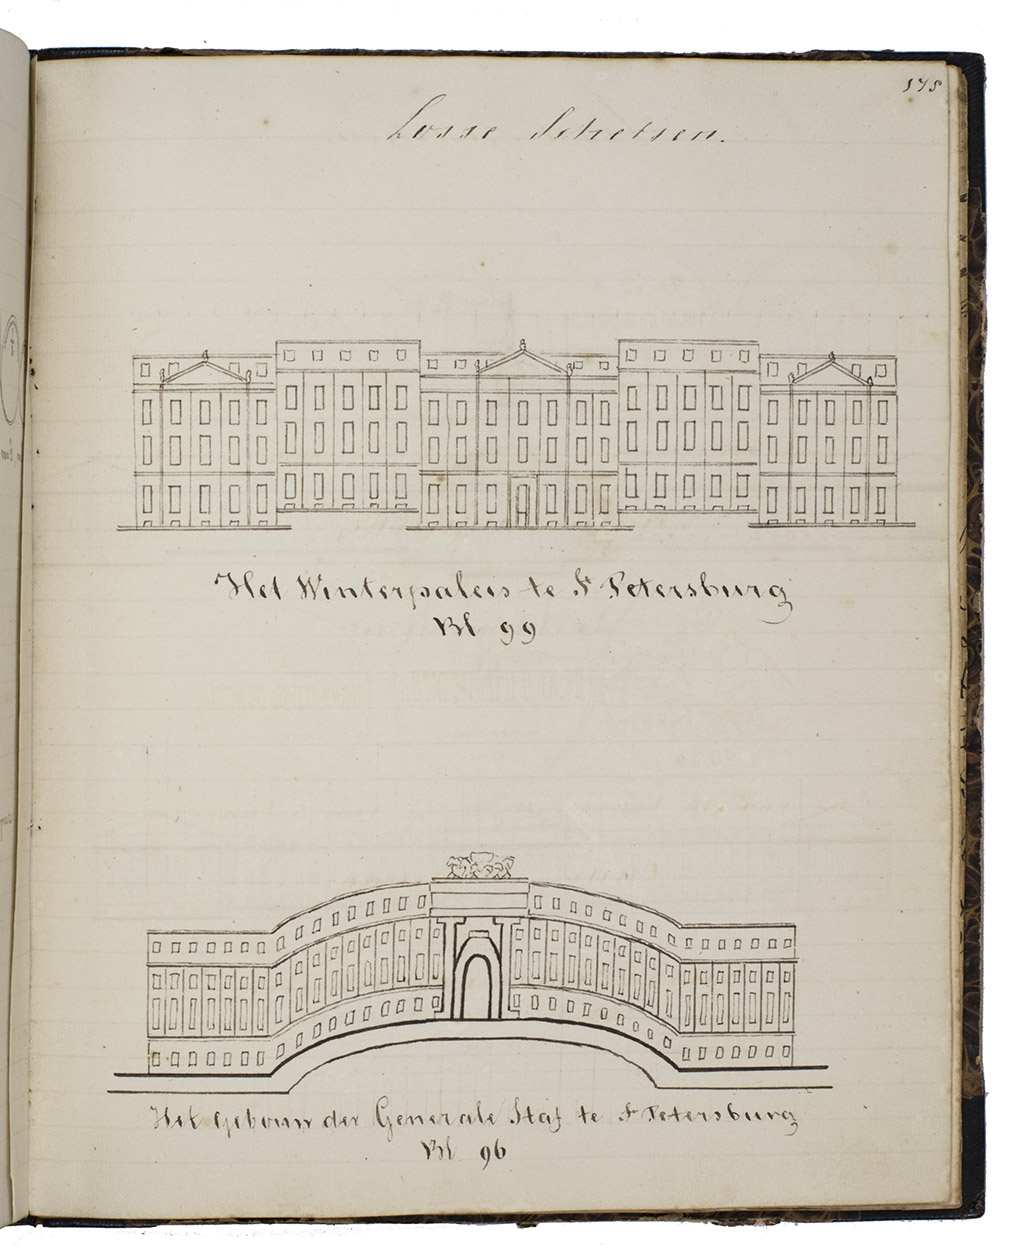 175
Losse Schetsen.
Het Winterpaleis te St Petersburg
Bl 99
Het gebouw der Generale Staf te St Petersburg
Bl 96